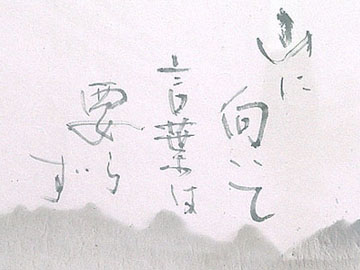 山に
向いて
言葉は
要ら
ず